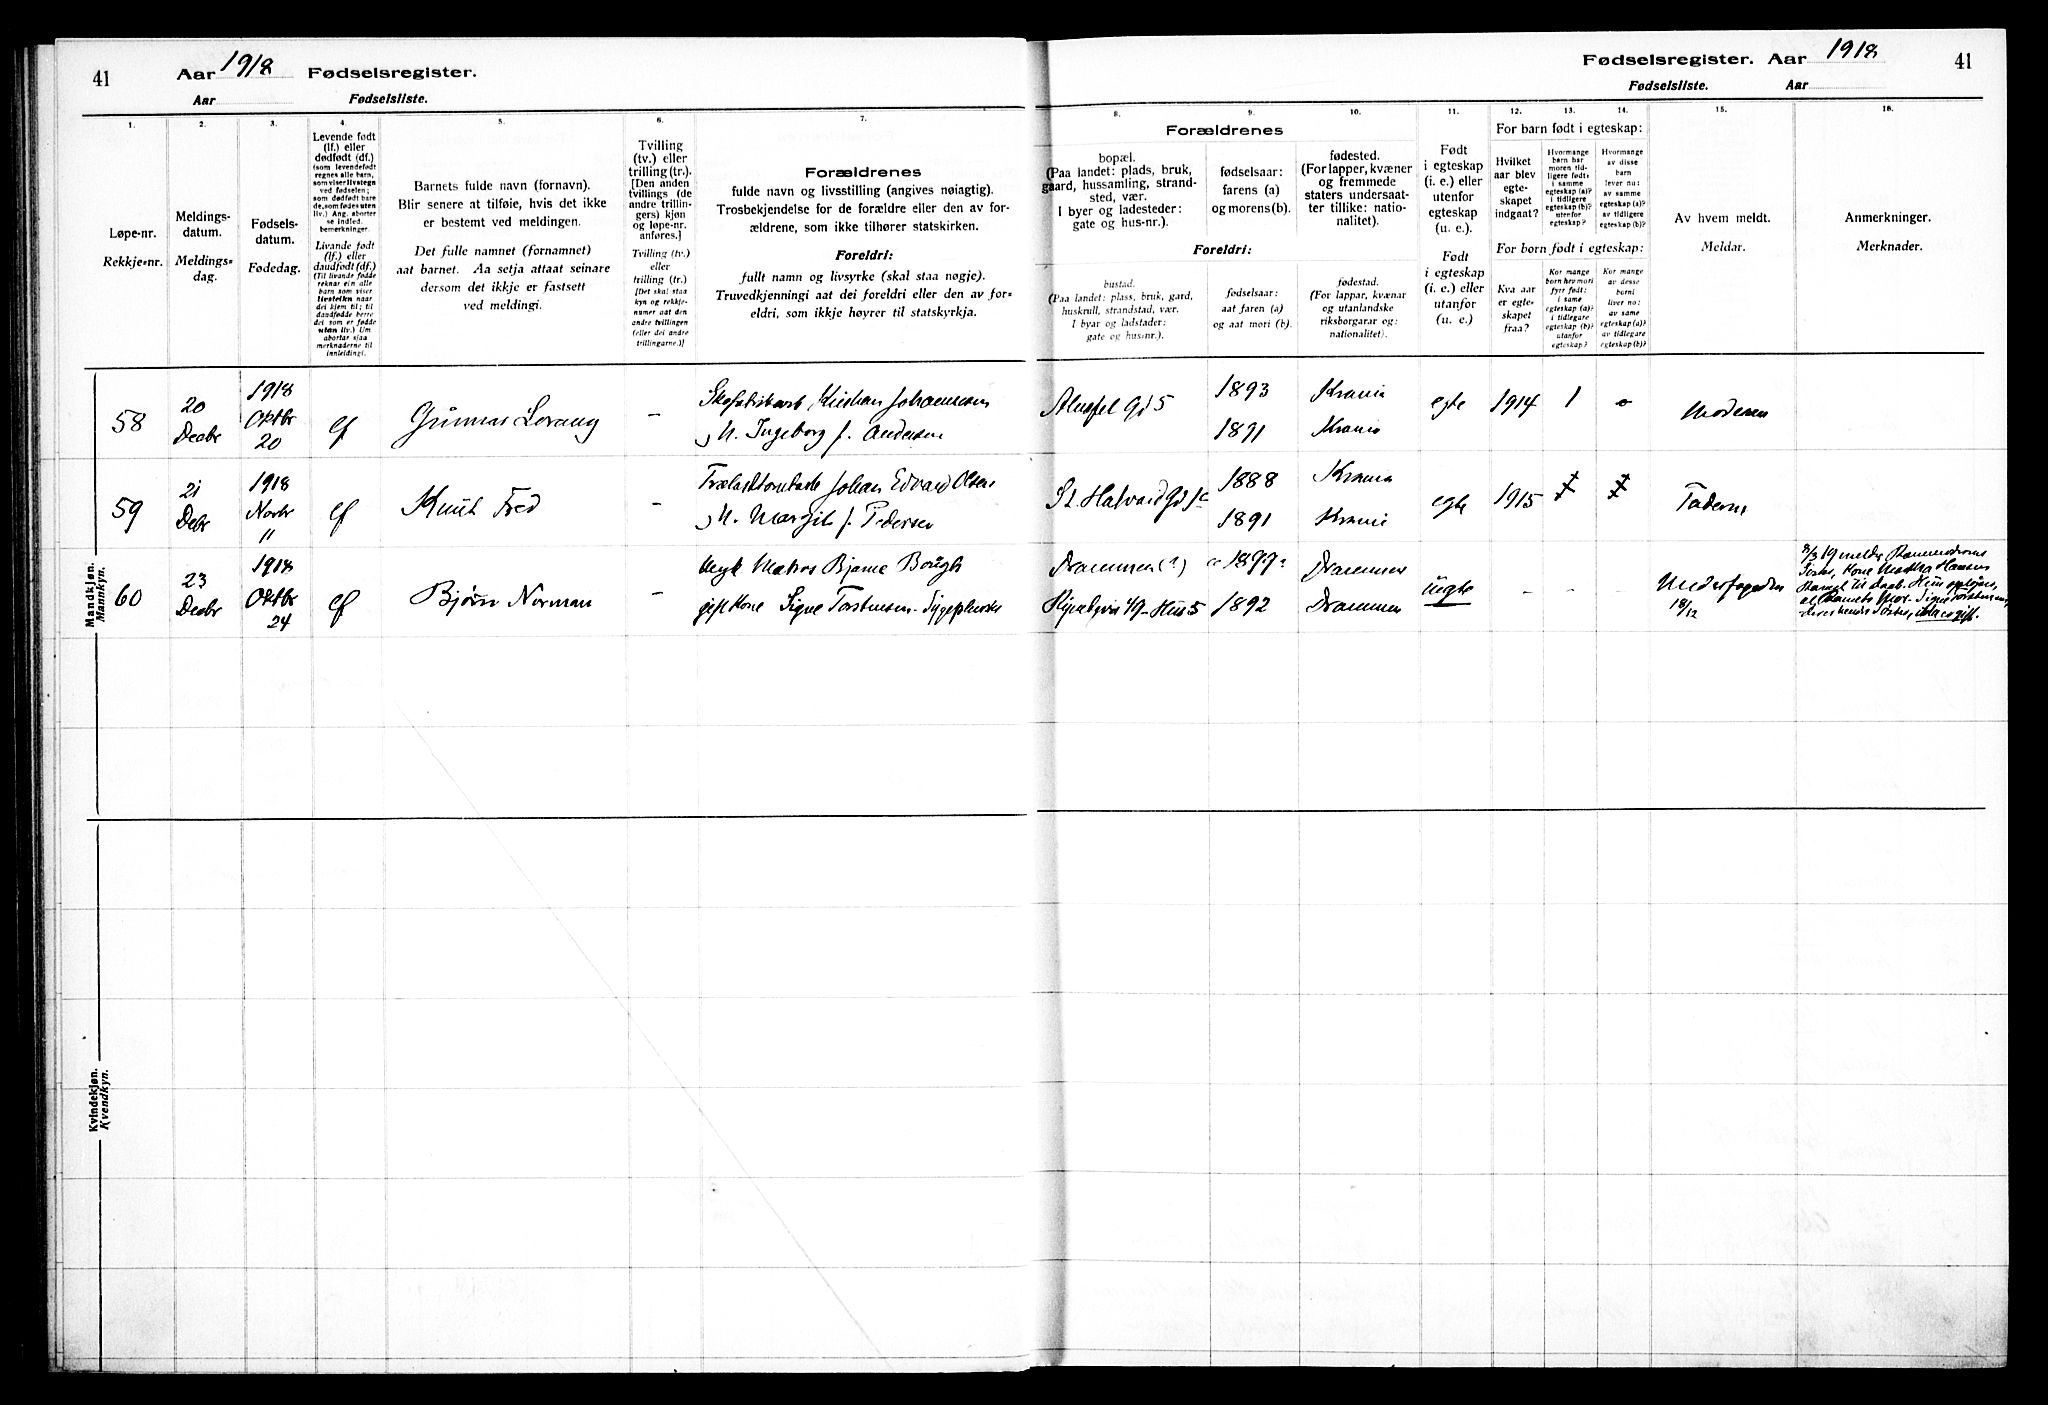 41
Aar 1918 Fødselsregister.
Aar Fødselsliste.
Fødselsregister. Aar 1918
41
Fødselsliste. Aar
1.
Løpe-nr.
Rekkje-nr.
2.
Meldings-
datum.
Meldings-
dag.
3.
Fødsels-
datum.
Fødedag.
4.
Levende født
(lf.) eller
dødfødt (df.)
(som levendefødt
regnes alle barn,
som viser livstegn
ved fødselen;
som dødfødt bare
de, som fødes uten
liv.) Ang. aborter
se indled.
bemerkninger.
Livande født
(lf.) eller
daudfødt (df.)
(Til livande fødde
reknar ein alle
barn som viser
livsteikn naar
dei kjem til; til
daudfødde berre
dei som er fødde
utan liv.) Um
abortar sjaa
merknaderne til
innleidingi.
5.
Barnets fulde navn (fornavn).
Blir senere at tilføie, hvis det ikke
er bestemt ved meldingen.
Det fulle namnet (fornamnet)
aat barnet. Aa setja attaat seinare
dersom det ikkje er fastsett
ved meldingi.
6.
Tvilling
(tv.) eller
trilling (tr.).
[Den anden
tvillings (de
andre trillin-
gers) kjøn
og løpe-nr.
anføres.]
Tvilling (tv.)
eller
trilling (tr.)
[Det skal staa
kyn og rekkje-
numer aat den
andre tvillingen
(eller dei andre
trillingarne.)]
7.
Forældrenes
fulde navn og livsstilling (angives nøiagtig).
Trosbekjendelse for de forældre eller den av for-
ældrene, som ikke tilhører statskirken.
Foreldri:
fullt namn og livsyrke (skal staa nøgje).
Truvedkjenningi aat dei foreldri eller den av for-
eldri, som ikkje høyrer til statskyrkja.
Forældrenes
8.
bopæl.
(Paa landet: plads, bruk,
gaard, hussamling, strand-
sted, vær.
I byer og ladesteder:
gate og hus-nr.).
9.
fødselsaar:
farens (a)
og morens (b).
10.
fødested.
(For lapper, kvæner
og fremmede
staters undersaat-
ter tillike: natio-
nalitet).
Foreldri:
bustad.
(Paa landet: plass, bruk, gard,
huskrull, strandstad, vær.
I byar og ladstader:
gate og hus-nr.).
fødselsaar:
aat faren (a)
og aat mori (b).
fødestad.
(For lappar, kvænar
og utanlandske
riksborgarar og:
nationalitet).
11.
Født
i egteskap
(i. e.) eller
utenfor
egteskap
(u. e.).
Født
i egteskap
(i. e.) eller
utanfor
(u. e.)
For barn født i egteskap:
12.
Hvilket
aar blev
egte-
skapet
indgaat?
13.
Hvormange
barn har
moren tid-
ligere født:
i samme
egteskap (a)?
i tidligere
egteskap (b)?
utenfor
egteskap?
14.
Hvormange
av disse
barn
lever nu:
av samme
egteskap (a)?
av tidligere
egteskap (b)?
For born født i egteskap:
Kva aar
er egte-
skapet
fraa?
Kor mange
born hev mori
fyrr født:
i same
egteskap (a)?
i tidlegare
egteskap (b)?
utanfor
egteskap?
Kor mange
av desse
borni
liver no:
av same
egteskap (a)?
av tidlegare
egteskap (b)?
15.
Av hvem meldt.
Meldar.
16.
Anmerkninger.
Merknader.
Mandkjøn.
Mannkyn.
58
20
Decbr
1918
Oktbr
20
lf
Gunnar Lorang
–
Kristian Johannesen
Ingeborg f. Andersen
Alnafel Gd 5
1893
1891
Krania
Krania
egte
1914
1
o
Moderen
59
21
Debr
1918
Novbr
11
lf
Knut Fred
–
Johan Edvard Olsen
Margit f. Pedersen
St Halvard Gd
1888
1891
Krania
Krania
egte
1915
Faderen
60
23
Decbr
1918
Oktbr
24
lf
Bjørn Norman
Matros Bjarne
gift Kone Signe Torstensen - Sygepleierske
Drammen (?)
49 - Hus 5
1892
Drammen
Drammen
uegte
–
–
–
18/12
Kvindekjøn.
Kvendkyn.